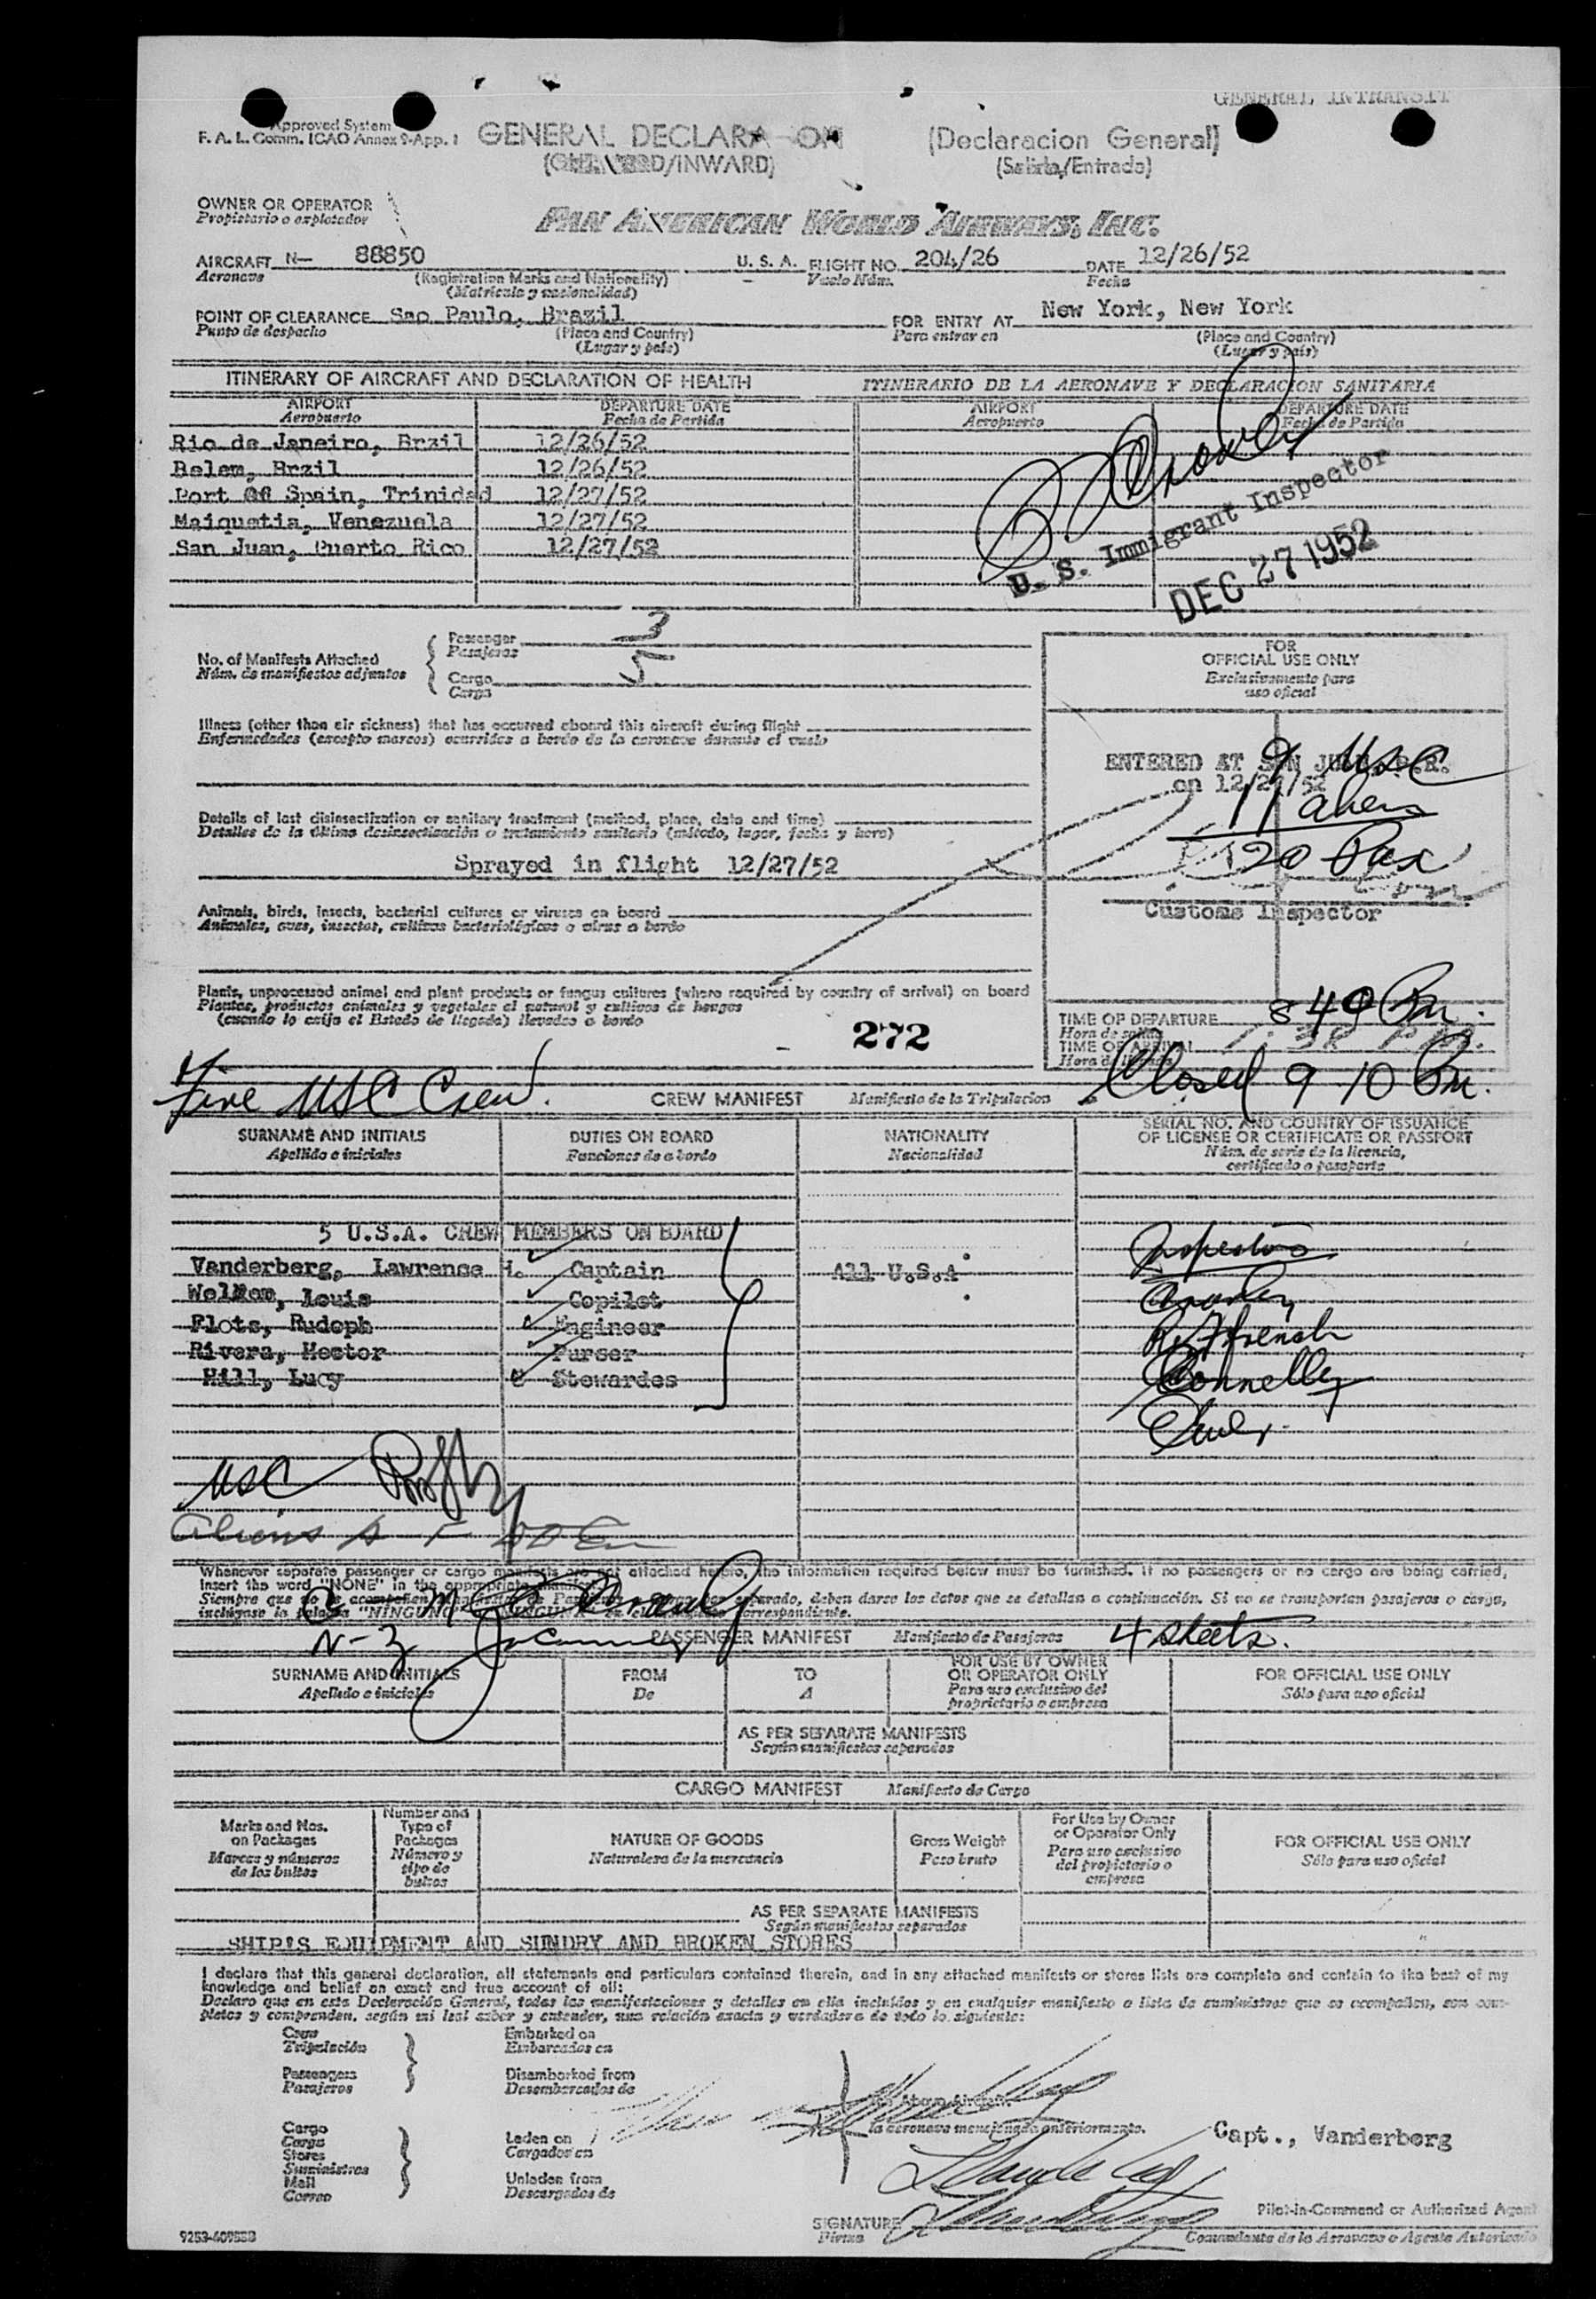 GENERAL INTRANSIT
Approved System
F. A. L. Comm. ICAO Annex 9-App. 1
GENERAL DECLARA ON (Declaracion General)
(OUTWARD/INWARD) (Salida/Entrada)
OWNER OR OPERATOR
Propietario o explotador
PAN AMERICAN WORLD AIRWAYS, INC.
AIRCRAFT N- 88850 U. S. A. FLIGHT NO. 204/26 DATE 12/26/52
Aeronave (Registration Marks and Nationality) Vuelo Núm. Fecha
(Matricula y nacionalidad)
POINT OF CLEARANCE Sao Paulo, Brazil FOR ENTRY AT New York, New York
Punto de despacho (Place and Country) Para entrar en (Place and Country)
(Lugar y país) (Lugar y país)
ITINERARY OF AIRCRAFT AND DECLARATION OF HEALTH ITINERARIO DE LA AERONAVE Y DECLARACION SANITARIA
AIRPORT DEPARTURE DATE AIRPORT DEPARTURE DATE
Aeropuerto Fecha de Partida Aeropuerto Fecha de Partida
Rio de Janeiro, Brzil 12/26/52
Belem, Brzil 12/26/52
Port Of Spain, Trinidad 12/27/52
Maiquetia, Venezuela 12/27/52
San Juan, Puerto Rico 12/27/52
U. S. Immigrant Inspector
DEC 27 1952
No. of Manifests Attached
Núm. de manifiestos adjuntos
Passenger 3
Pasajeros
Cargo 5
Carga
FOR
OFFICIAL USE ONLY
Exclusivamente para
uso oficial
Illness (other than air sickness) that has occurred aboard this aircraft during flight
Enfermedades (excepto mareos) ocurridas a bordo de la aeronave durante el vuelo
ENTERED AT SAN JUAN, P.R.
on 12/27/52
9 USC
11 aliens
20 Pax
Customs Inspector
Details of last disinsectization or sanitary treatment (method, place, date and time)
Detalles de la última desinsectización o tratamiento sanitario (método, lugar, fecha y hora)
Sprayed in flight 12/27/52
Animals, birds, insects, bacterial cultures or viruses on board
Animales, aves, insectos, cultivos bacteriológicos o virus a bordo
Plants, unprocessed animal and plant products or fungus cultures (where required by country of arrival) on board
Plantas, productos animales y vegetales al natural y cultivos de hongos
(cuando lo exija el Estado de llegada) llevados a bordo
272
TIME OF DEPARTURE 8 40 Pm.
Hora de salida
TIME OF ARRIVAL
Hora de llegada
Closed 9 10 Pm.
Five USC Crew.
CREW MANIFEST Manifiesto de la Tripulacion
SURNAME AND INITIALS DUTIES ON BOARD NATIONALITY SERIAL NO. AND COUNTRY OF ISSUANCE
OF LICENSE OR CERTIFICATE OR PASSPORT
Apellido e iniciales Funciones de a bordo Nacionalidad Núm. de serie de la licencia,
certificado o pasaporte
5 U.S.A. CREW MEMBERS ON BOARD
Vanderberg, Lawrense H. Captain All U.S.A Inspectors
Louis Copilot
Flots, Rudoph Engineer
Rivera, Hector Purser
Hill, Lucy Stewardes Connelly
USC
Aliens
Whenever separate passenger or cargo manifests are not attached hereto, the information required below must be furnished. If no passengers or no cargo are being carried,
insert the word "NONE" in the appropriate manifest.
4 sheets.
PASSENGER MANIFEST Manifiesto de Pasajeros
SURNAME AND INITIALS FROM TO FOR USE BY OWNER
OR OPERATOR ONLY FOR OFFICIAL USE ONLY
Apellido e iniciales De A Para uso exclusivo del
propietario o empresa Sólo para uso oficial
AS PER SEPARATE MANIFESTS
Según manifiestos separados
CARGO MANIFEST Manifiesto de Carga
Marks and Nos.
on Packages
Marcas y números
de los bultos
Number and
Type of
Packages
Número y
tipo de
bultos
NATURE OF GOODS
Naturaleza de la mercancia
Gross Weight
Peso bruto
For Use by Owner
or Operator Only
Para uso exclusivo
del propietario o
empresa
FOR OFFICIAL USE ONLY
Sólo para uso oficial
AS PER SEPARATE MANIFESTS
Según manifiestos separados
SHIP'S EQUIPMENT AND SUNDRY AND BROKEN STORES
I declare that this general declaration, all statements and particulars contained therein, and in any attached manifests or stores lists are complete and contain to the best of my
knowledge and belief an exact and true account of all:
Declaro que en esta Declaración General, todas las manifestaciones y detalles en ella incluídos y en cualquier manifiesto o lista de suministros que se acompañen, son com-
pletos y comprenden, según mi leal saber y entender, una relación exacta y verdadera de todo lo siguiente:
Crew
Tripulación
Passengers
Pasajeros
Embarked on
Embarcados en
Disembarked from
Desembarcados de
Cargo
Carga
Stores
Suministros
Mail
Correo
Laden on
Cargados en
Unladen from
Descargados de
Above Aircraft
la aeronave mencionada anteriormente.
Capt., Vanderberg
SIGNATURE
Firma
Pilot-in-Command or Authorized Agent
Comandante de la Aeronave o Agente Autorizado
9253-409553